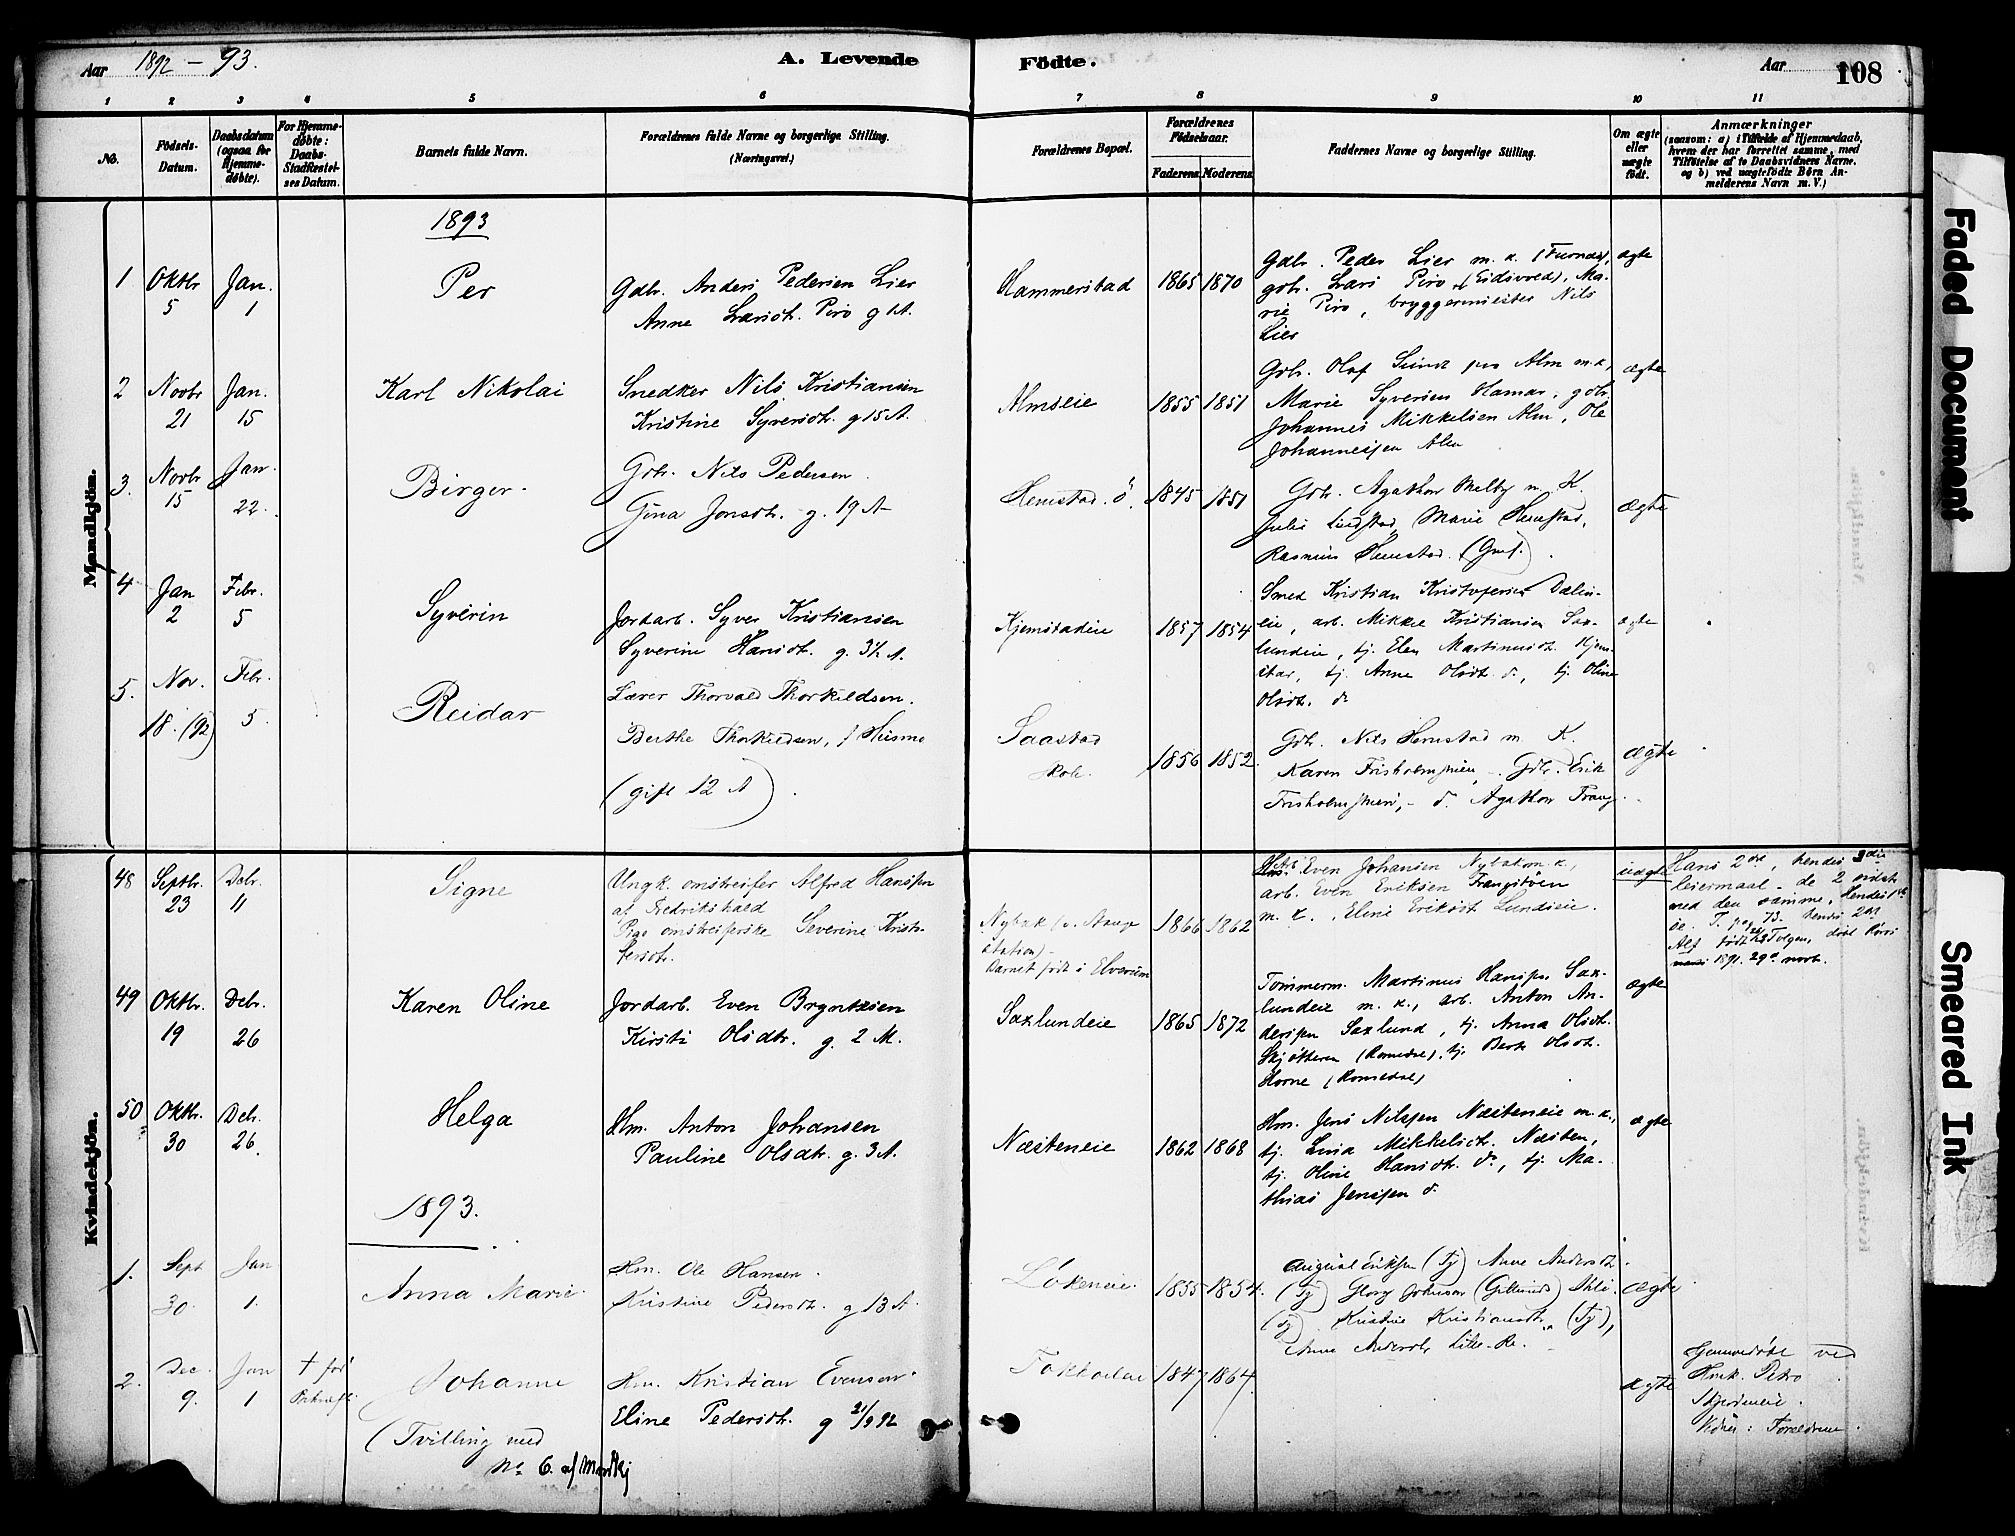 Aar 1892 - 93.
A. Levende
Födte.
Aar
108
1 2 3 4 5 6 7 8 9 10 11
No.
Födsels-
Datum.
Daabsdatum
(ogsaa for
Hjemme-
döbte).
For Hjemme-
döbte:
Daabs-
Stadfæstel-
ses Datum.
Barnets fulde Navn.
Forældrenes fulde Navne og borgerlige Stilling.
(Næringsvei.)
Forældrenes Bopæl.
Forældrenes
Födselsaar.
Faderens Moderens
Faddernes Navne og borgerlige Stilling.
Om ægte
eller
uægte
födt.
Anmærkninger
(saasom: a) i Tilfælde af Hjemmedaab,
hvem der har forrettet samme, med
Tilföielse af to Daabsvidners Navne,
og b) ved uægtefödte Börn An-
melderens Navn m. V.)
Mandkjön.
1893
1 Oktbr 5 Jan. 1
Per
Gdbr. Anders Pedersen Lier
Anne Larsdtr. Piro g 1 A.
Hammerstad
1865 1870
Gdbr. Peder Lier m. k. (Furnæs),
gbr. Lars Piro (Eidsvold), Ma-
rie Piro, bryggermester Nils
Lier
ægte
2 Novbr 21 Jan. 15
Karl Nikolai
Snedker Nils Kristiansen
Kristine Syversdtr. g 15 A.
Almseie
1855 1851
Gbr. Olaf Sund pr Alm m.k.,
Marie Syversen Hamar, gdbr.
Johannes Mikkelsen Alm, Ole
Johannessen Alm
ægte
3. Novbr 15 Jan. 22.
Birger.
Gbr. Nils Pedersen
Gina Jonsdtr. g. 19 A
Hemstad. ö.
1845 1851
Gbr. Agathon Melby m. K.
Julie Lindstad, Marie Hemstad,
Rasmus Hemstad. (Gmf.)
ægte
4 Jan 2 Febr. 5
Syverin
Jordarb. Syver Kristiansen
Syverine Hansdtr. g. 3½ A.
Kjemstadeie
1857 1854
Smed Kristian Kristofersen Dælin-
eie, arb. Mikkel Kristiansen Sax-
lundeie, tj. Elen Martinusdtr. Kjem-
stad, tj. Anne Olsdtr. do, tj. Oline
Olsdtr. do
ægte
5. Nov. 18. (92) Febr. 5.
Reidar
Lærer Thorvald Thorkildsen.
Berthe Thorkildsen, f Husmo
(gift 12 A)
Saastad
skole.
1856 1852.
Gdr. Nils Hemstad m. K.
Karen Frisholm, Gdr. Erik
Agathon Frang.
ægte
Kvindekjön.
48 Septbr. 23 Debr. 11
Signe
Ungk. omstreifer Alfred Hanssen
af Fredrikshald
Pige omstreiferske Severine Krist-
fersdtr.
Nybak (v. Aange
station)
Barnet födt i Elverum
1866 1862
Even Johansen Nybak m. k.,
arb. Even Eriksen Frangstöen
m. k., Eline Eriksdt Lundeie.
uægte
Hans 2det, hendes 3die
leiermaal - de 2 sidste
med den samme. Hendes 1ste
se. T. pag 73. hendes 2det
Alf födt i Tolgen, döbt Röros
1891. 29de novb.
49 Oktbr. 19 Debr. 26
Karen Oline
Jordarb. Even Bryntesen
Kirsti Olsdtr. g. 2 M.
Saxlundeie
1865 1872
Tömmerm. Martinus Hanssen Sax-
lundeie m. k., arb. Anton An-
derssen Saxlund, tj. Anna Olsdtr.
Skjötteren (Romedal), tj. Berte Olsdt.
Horne (Romedal)
ægte
50 Oktbr. 30 Debr. 26.
Helga
Hm. Anton Johansen
Pauline Olsdtr. g. 3 A.
Næsteneie
1862 1868
Hm. Jens Nilssen Næsteneie m. k.,
tj. Lina Mikkelsdtr. Næsten,
tj. Oline Hansdtr. do, tj. Ma-
thias Jenssen do
ægte
1893.
1. Sept 30. Jan 1.
Anna Marie.
Hm. Ole Hansen.
Kristine Pedersdtr. g 13 A.
Lökeneie.
1855 1854.
August Eriksen (Tj) Anne Andersdtr.
(Tj) Georg Johnsen (Gillund)
(Tj) Kristine Kristiansdtr. (Tj),
Anne Andersdtr
ægte
2. Dec. 9. Jan 1 † før
Johanne
(Tvilling med
No 6. af Mandkj
Hm. Kristian Evensen.
Eline Pedersdtr. g 21/9 92
1847 1864.
ægte
Hjemmedöbt ved
Petro
Skjerdineie.
Vidner: Forældrene.
Faded Document
Smeared Ink